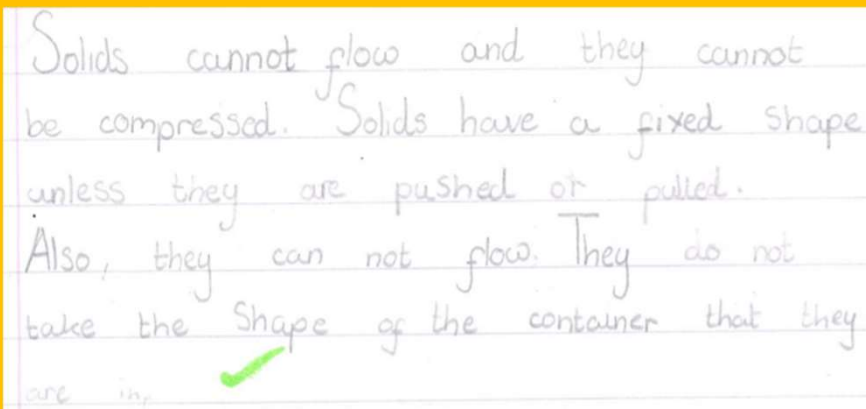 Solids cannot flow and they cannot
be compressed. Solids have a fixed shape
unless they are pushed or pulled.
Also, they can not flow. They do not
take the Shape of the container that they
are in,